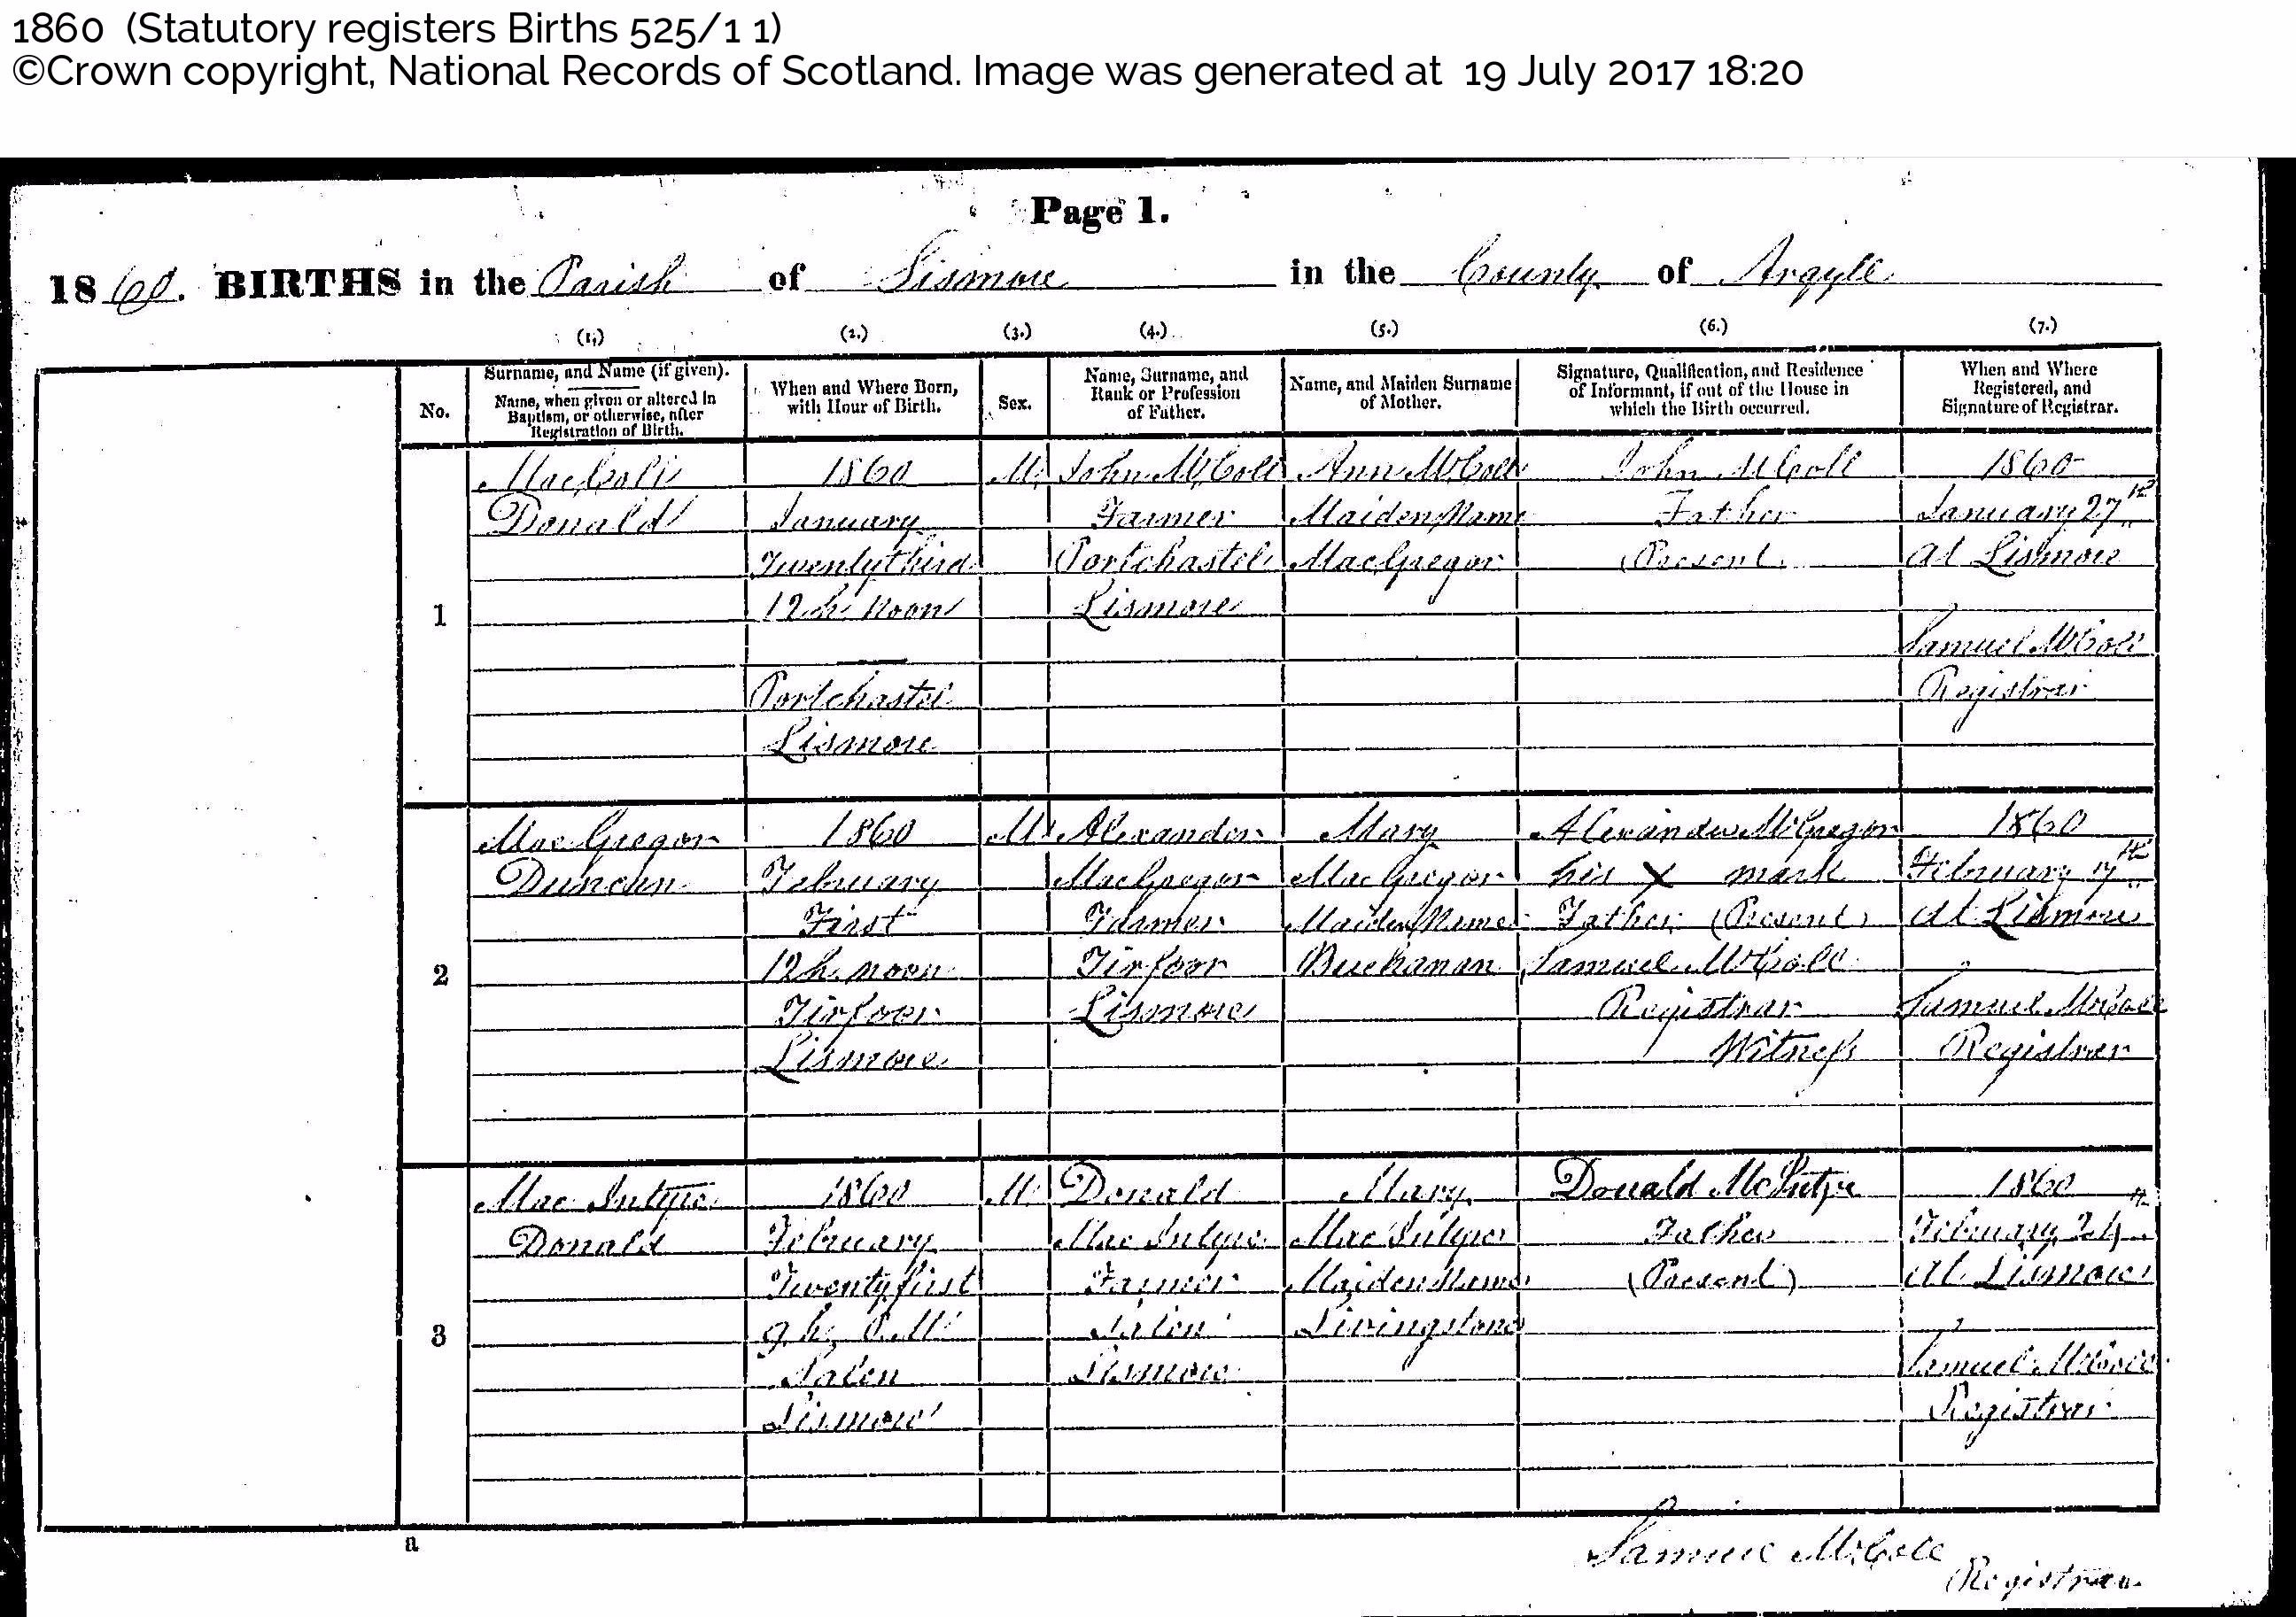 1860 (Statutory registers Births 525/1 1)
©Crown copyright, National Records of Scotland. Image was generated at 19 July 2017 18:20
Page 1.
1860. BIRTHS in the Parish of Lismore in the County of Argyll
(1.) (2.) (3.) (4.) (5.) (6.) (7.)
No.
Surname, and Name (if given).
Name, when given or altered in
Baptism, or otherwise, after
Registration of Birth.
When and Where Born,
with Hour of Birth.
Sex.
Name, Surname, and
Rank or Profession
of Father.
Name, and Maiden Surname
of Mother.
Signature, Qualification, and Residence
of Informant, if out of the House in
which the Birth occurred.
When and Where
Registered, and
Signature of Registrar.
1
MacColl
Donald
1860
January
Twentythird
12 h. noon
Portchastel
Lismore
M.
John McColl
Farmer
Portchastel
Lismore
Ann McColl
Maiden Name
MacGregor
John McColl
Father
(Present)
1860
January 27th
At Lismore
Samuel McColl
Registrar
2
MacGregor
Duncan
1860
February
First
12 h. noon
Tirfoor
Lismore
M.
Alexander
MacGregor
Farmer
Tirfoor
Lismore
Mary
MacGregor
Maiden Name
Buchanan
Alexander McGregor
his X mark
Father (Present)
Samuel McColl
Registrar
Witness
1860
February 7th
At Lismore
Samuel McColl
Registrar
3
Mac Intyre
Donald
1860
February
Twentyfirst
9 h. P.M.
Salen
Lismore
M.
Donald
Mac Intyre
Farmer
Salen
Lismore
Mary
Mac Intyre
Maiden Name
Livingstone
Donald McIntyre
Father
(Present)
1860
February 24th
At Lismore
Samuel McColl
Registrar
a
Samuel McColl
Registrar